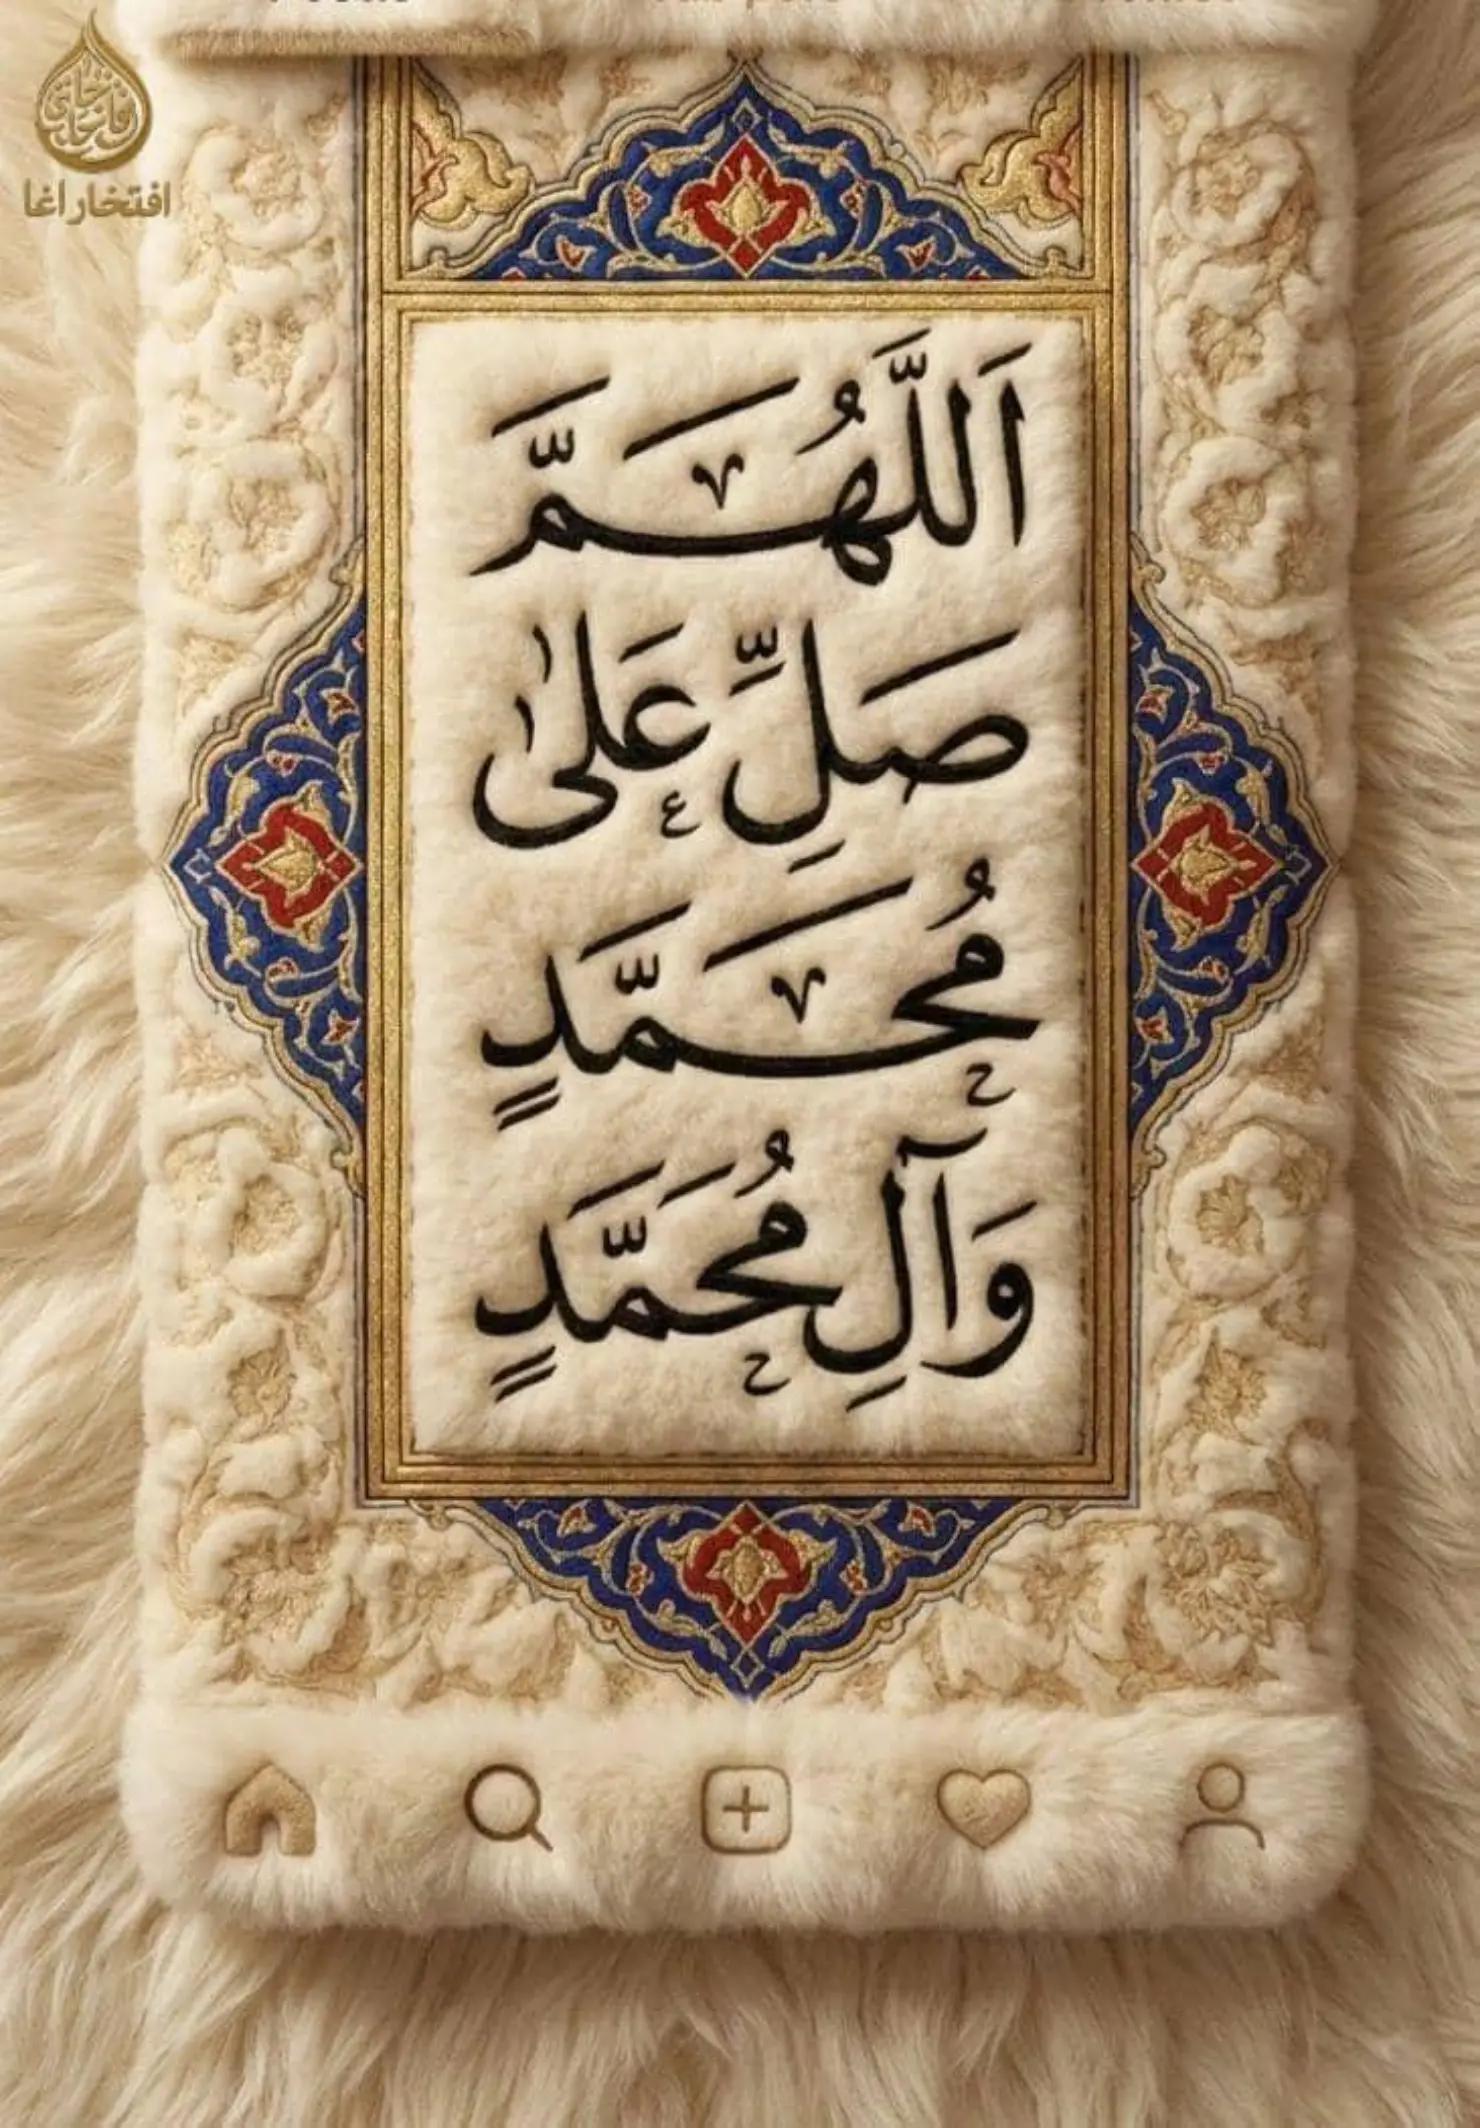 افتخار اغا
اَللّٰهُمَّ
صَلِّ عَلىٰ
مُحَمَّدٍ
وَآلِ مُحَمَّدٍ